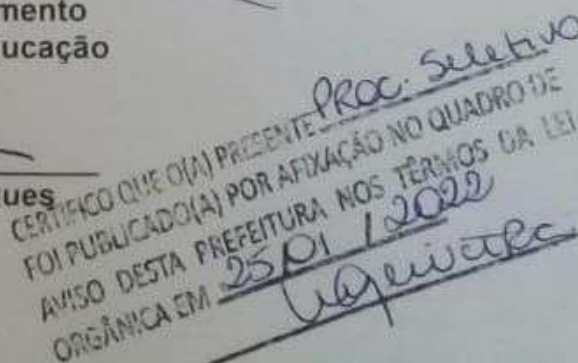 mento
ucação
ues
CERTIFICO QUE O(A) PRESENTE PROC. Seletivo
FOI PUBLICADO(A) POR AFIXAÇÃO NO QUADRO DE
AVISO DESTA PREFEITURA NOS TERMOS DA LEI
ORGÂNICA EM 25/01/2022